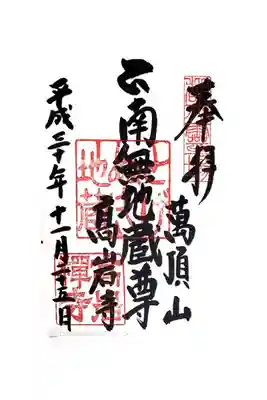 奉拝
萬頂山
南無地蔵尊
髙岩寺
平成三十年十一月二十五日